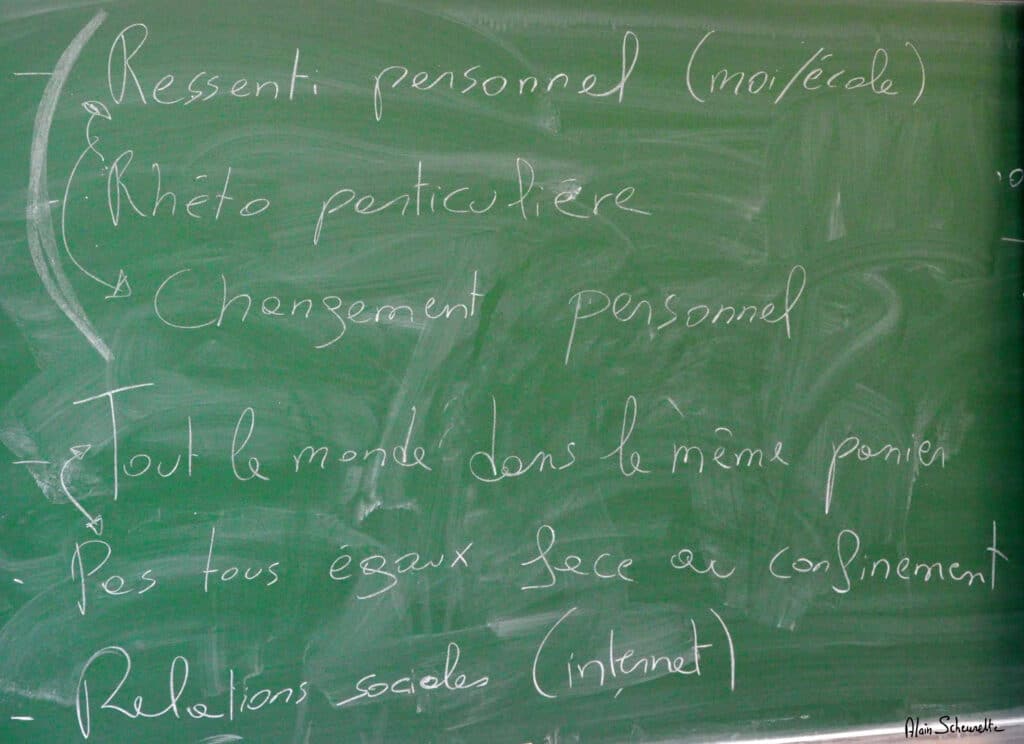 - Ressenti personnel (moi/école)
- Rhéto particulière
Changement personnel
- Tout le monde dans le même panier
- Pas tous égaux face au confinement
- Relations sociales (internet)
Alain Scheurette